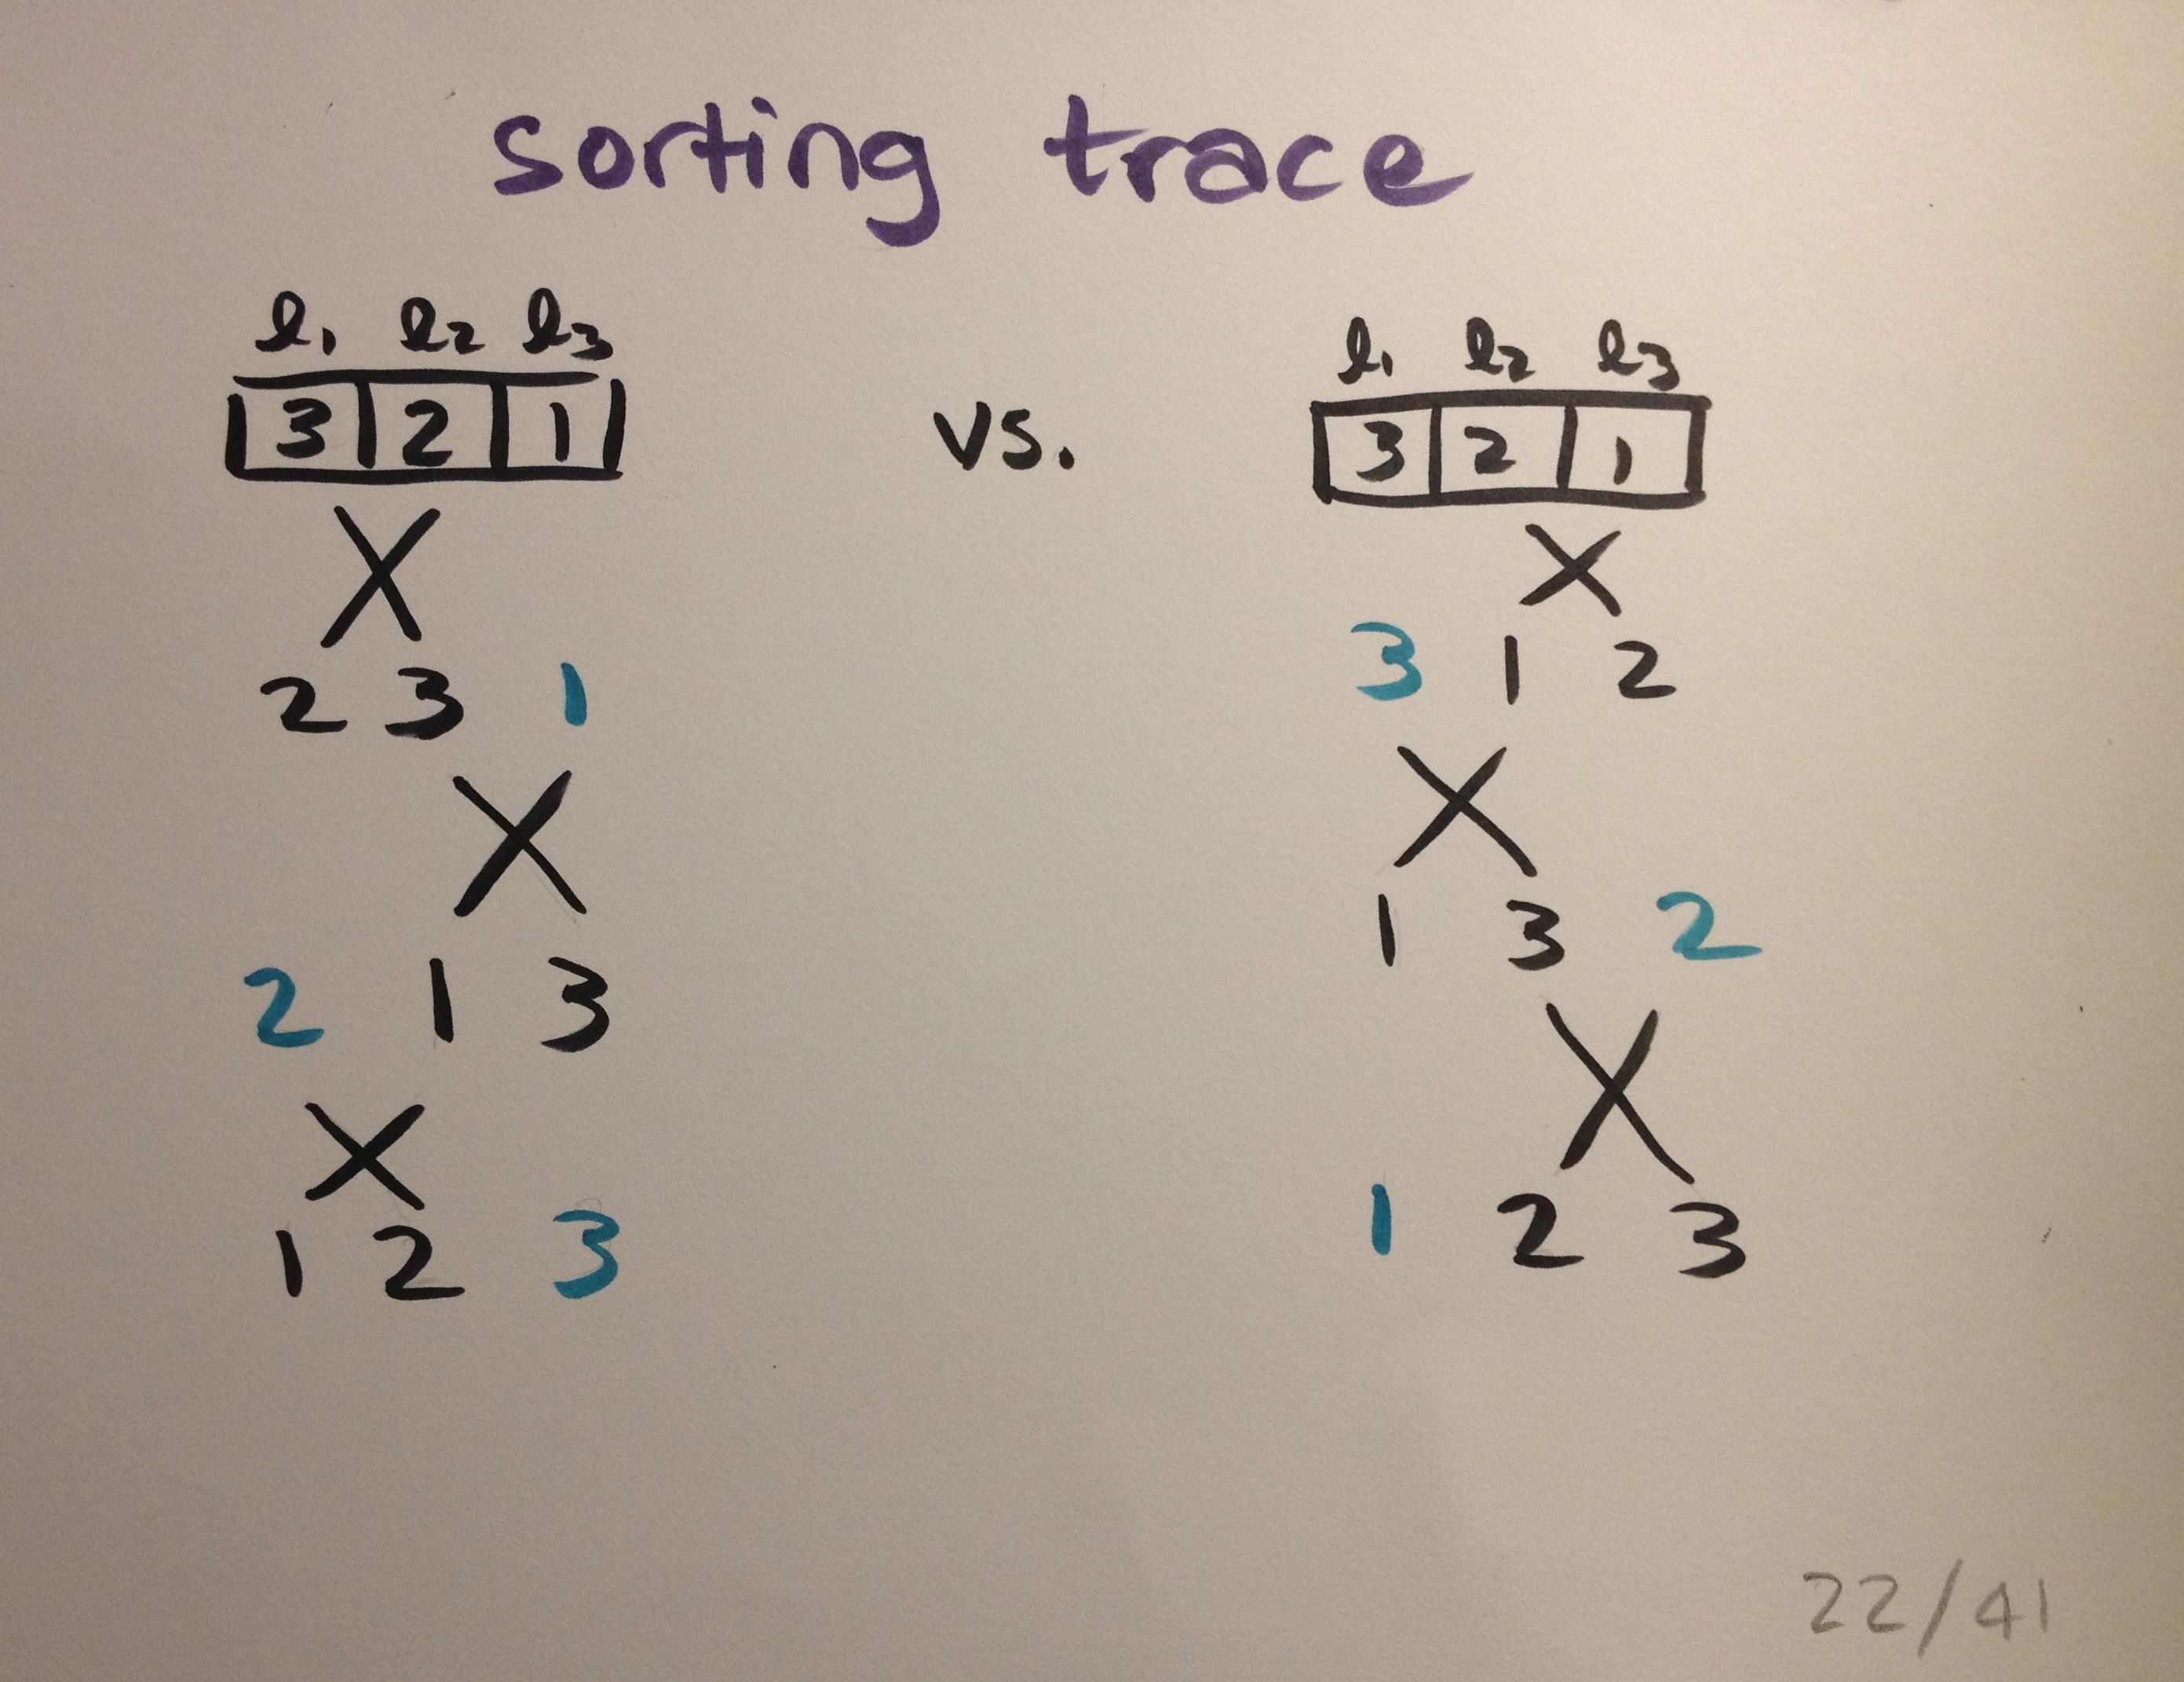 sorting trace
l1 l2 l3
3 2 1
2 3 1
2 1 3
1 2 3
vs.
l1 l2 l3
3 2 1
3 1 2
1 3 2
1 2 3
22/41